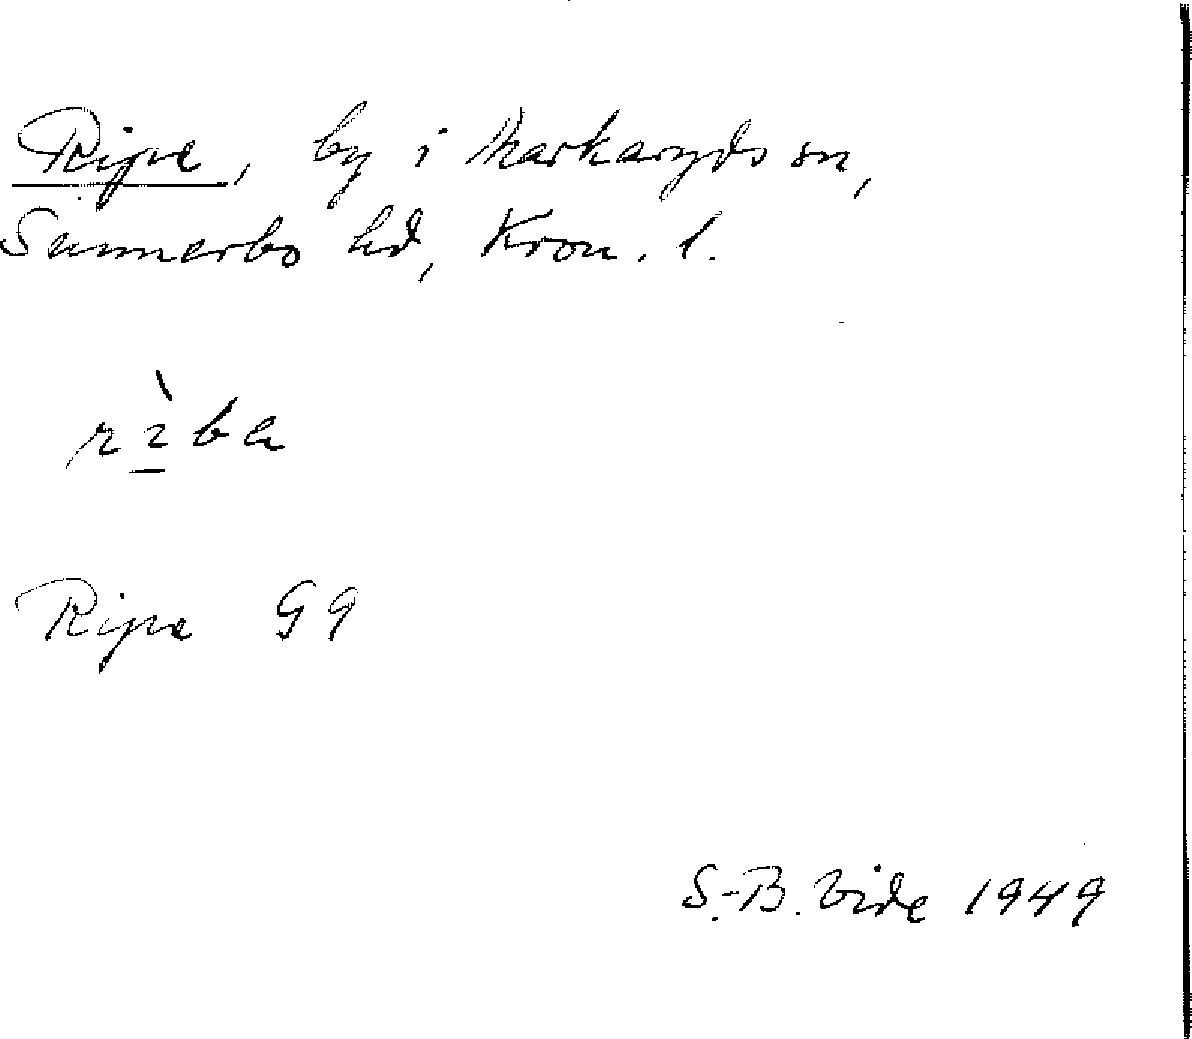 Ripe, by i Markaryds sn,
Sunnerbo hd, Kron. l.
rì̱ba
Ripe G9
S.-B. Vide 1949